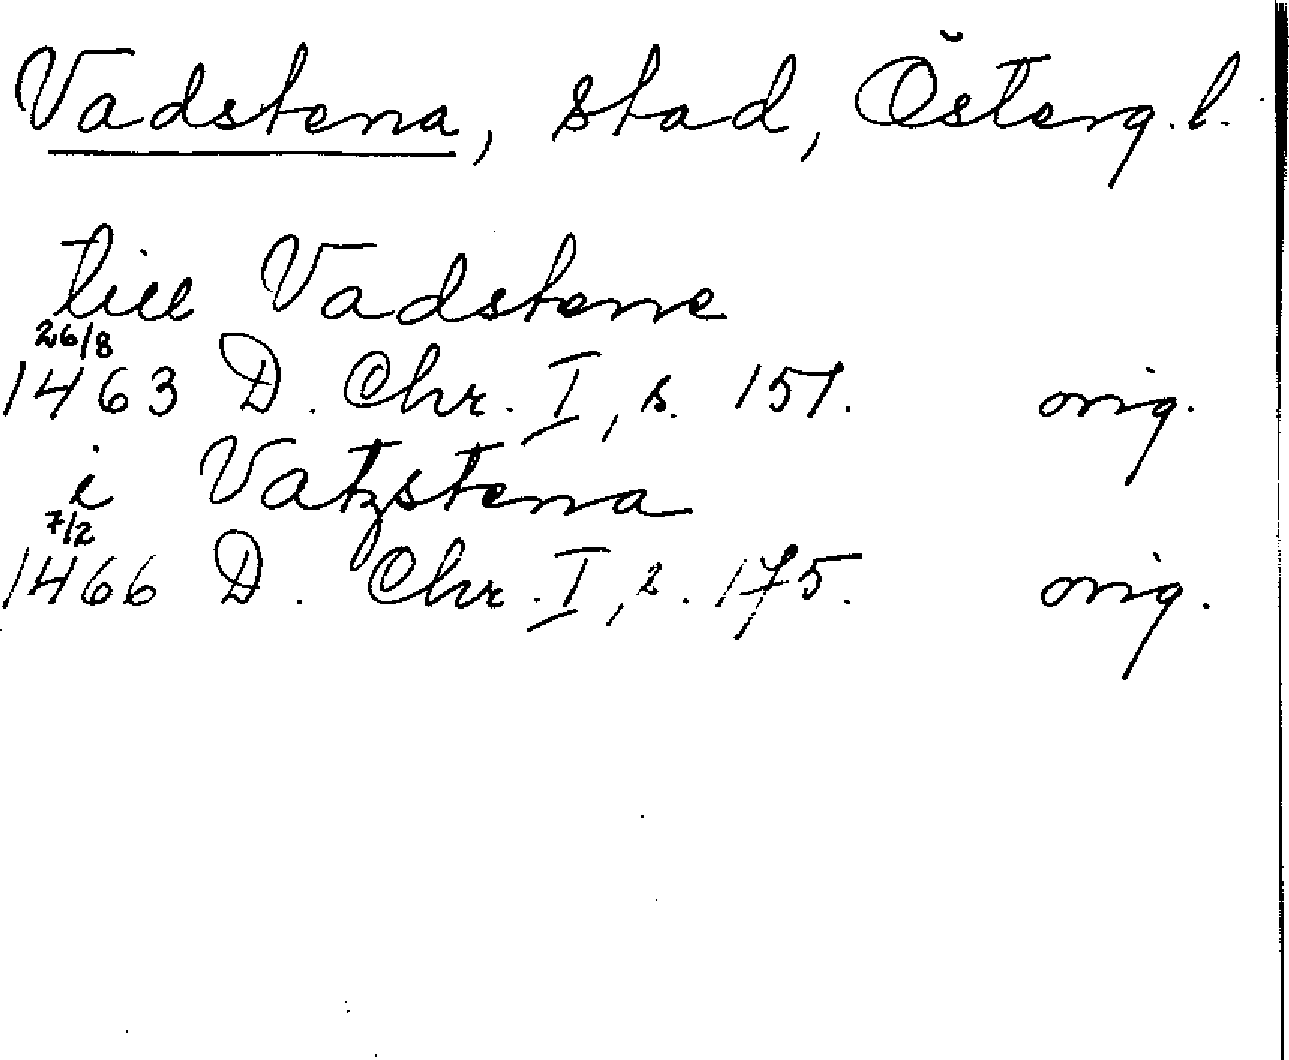 Vadstena, stad, Österg. l.
till Vadstene
26/8
1463 D. Chr. I, s. 151. orig.
i Vatzstena
7/2
1466 D. Chr. I, s. 175. orig.